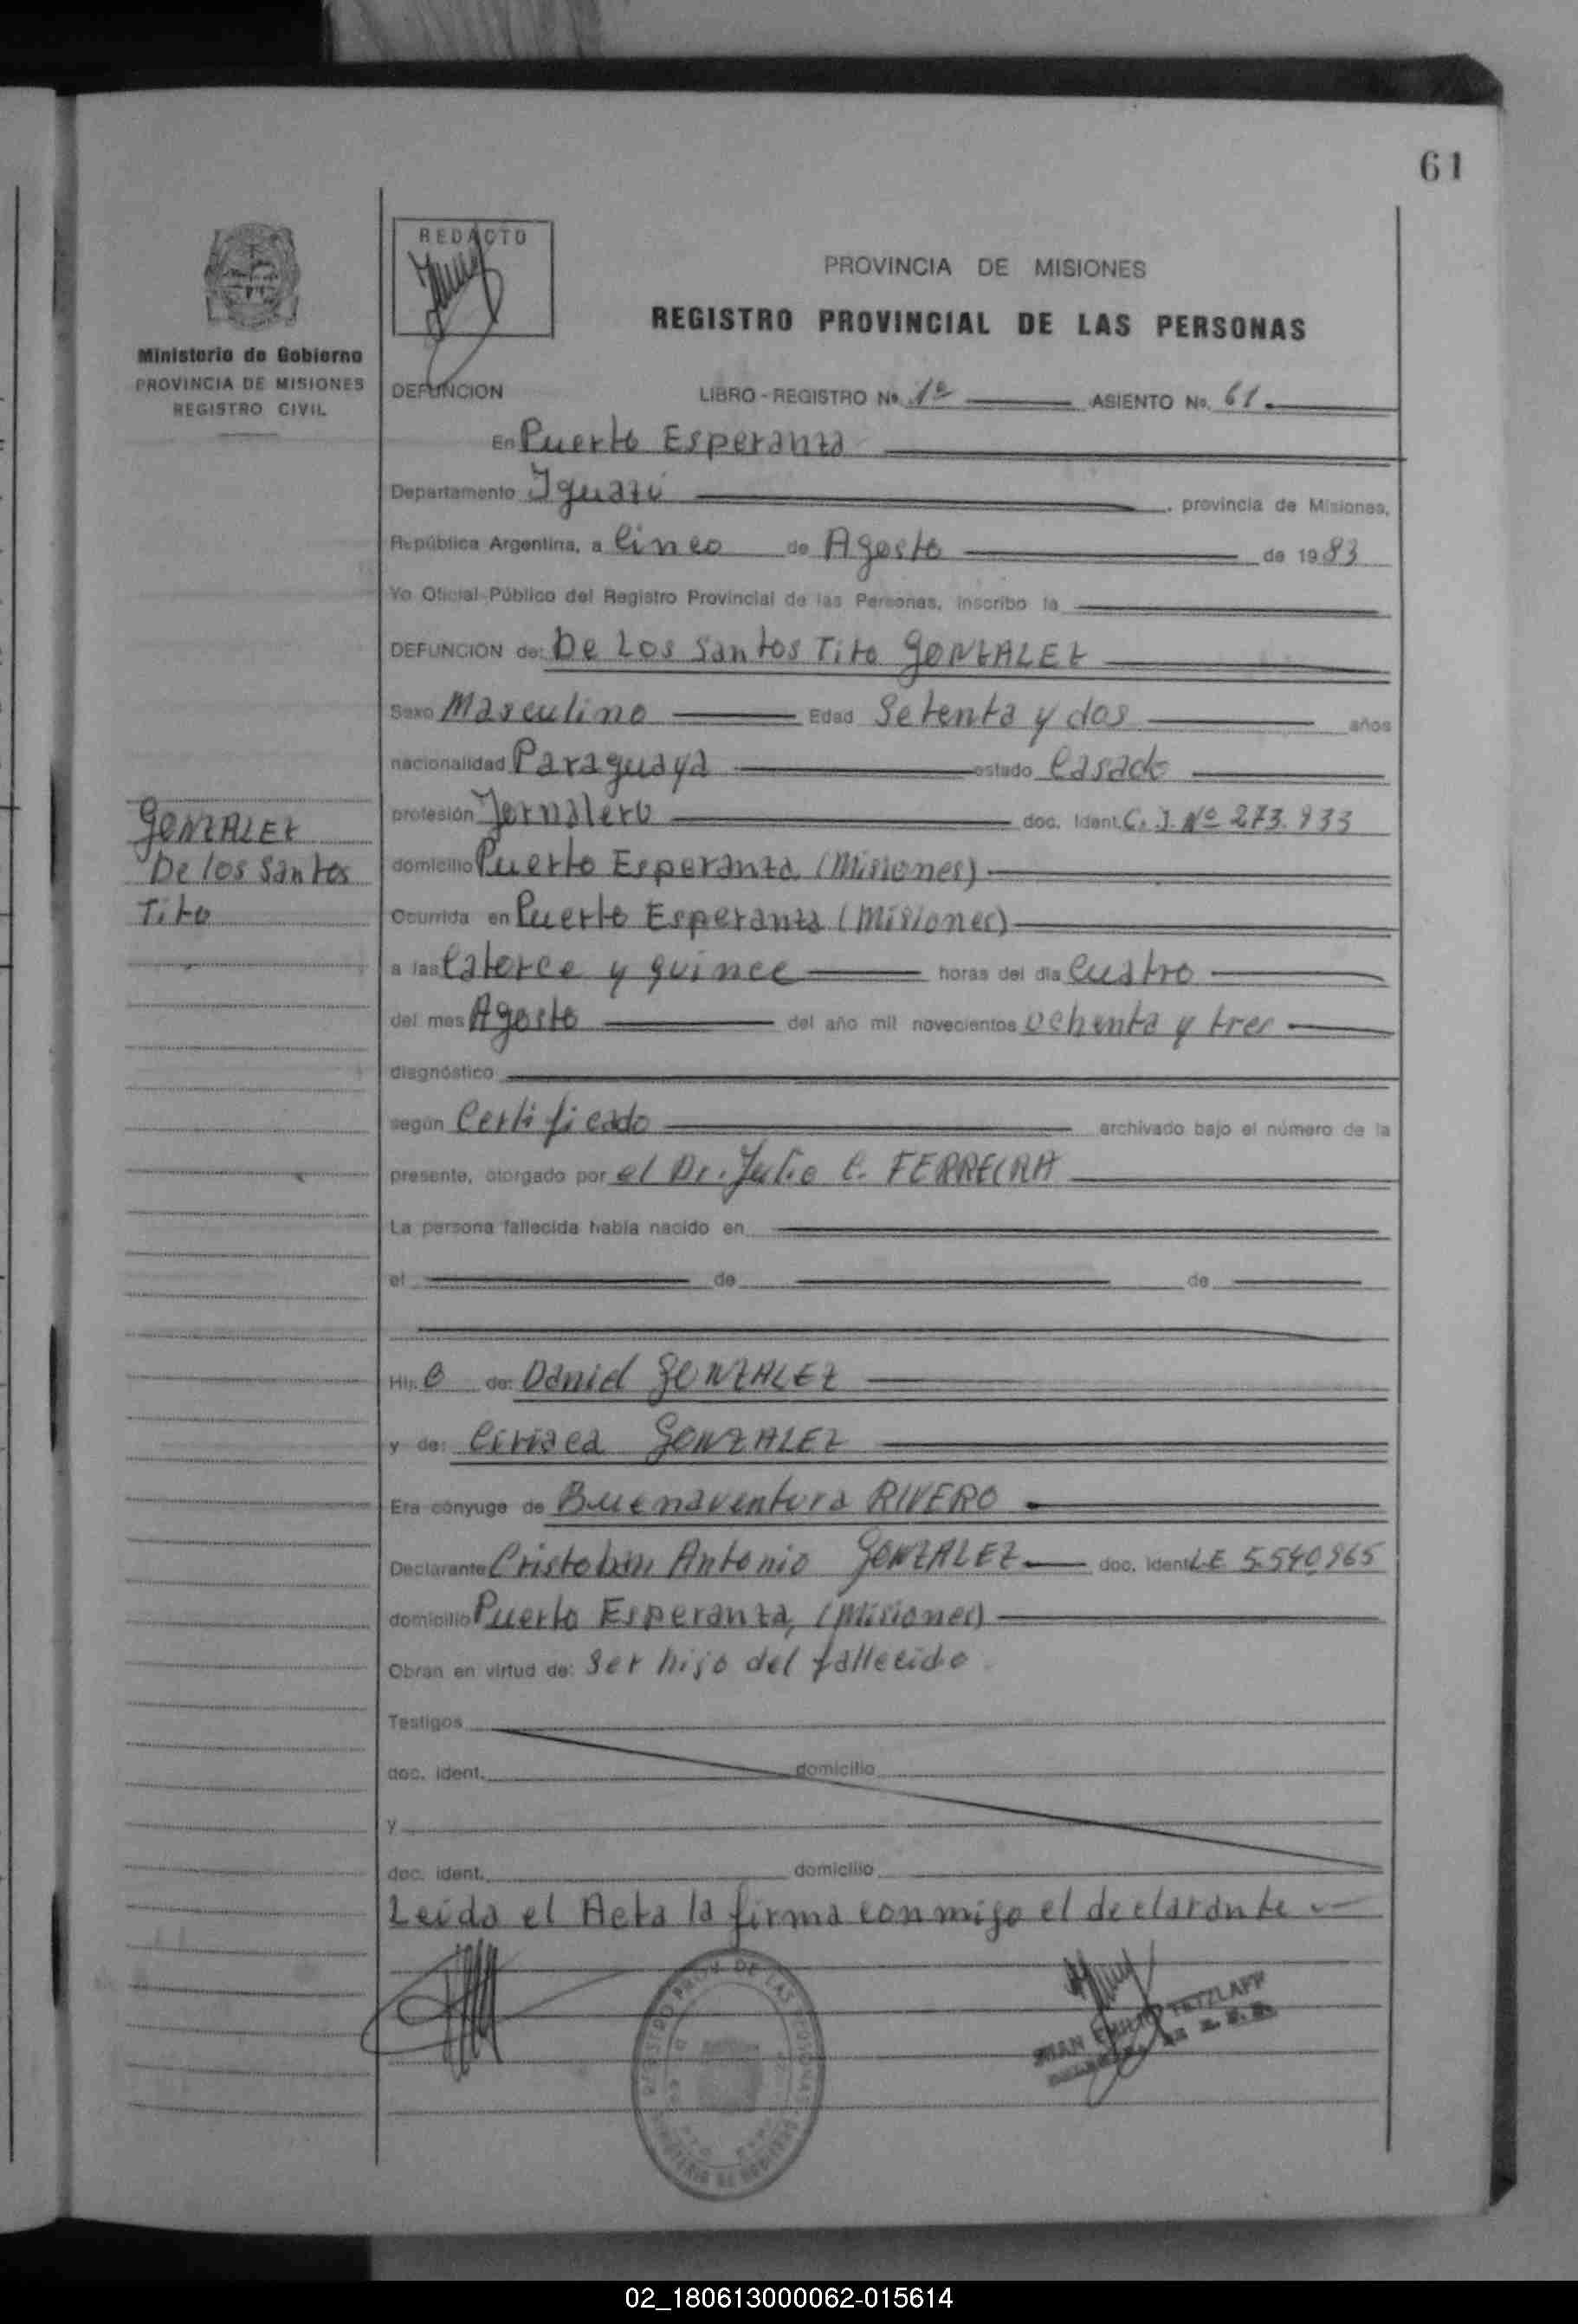 61
REDACTO
PROVINCIA DE MISIONES
REGISTRO PROVINCIAL DE LAS PERSONAS
Ministerio de Gobierno
PROVINCIA DE MISIONES
REGISTRO CIVIL
DEFUNCION LIBRO - REGISTRO No. 1º ASIENTO No. 61.
En Puerto Esperanza
Departamento Iguazú, provincia de Misiones,
República Argentina, a Cinco de Agosto de 1983
Yo Oficial Público del Registro Provincial de las Personas, inscribo la
DEFUNCION de: De Los Santos Tito GONZALEZ
Sexo Masculino Edad Setenta y dos años
nacionalidad Paraguaya estado Casado
profesión Jornalero doc. Ident. C. I. Nº 273.933
domicilio Puerto Esperanza (Misiones)
Ocurrida en Puerto Esperanza (Misiones)
a las Catorce y quince horas del día Cuatro
del mes Agosto del año mil novecientos ochenta y tres
diagnóstico
según Certificado archivado bajo el número de la
presente, otorgado por el Dr. Julio C. FERREIRA
La persona fallecida había nacido en
el de de
Hij o de: Daniel GONZALEZ
y de: Ciriaca GONZALEZ
Era cónyuge de Buenaventura RIVERO
Declarante Antonio GONZALEZ doc. Ident. LE 5.540965
domicilio Puerto Esperanza, (Misiones)
Obran en virtud de: Ser hijo del fallecido
Testigos
doc. ident. domicilio
y
doc. ident. domicilio
Leida el Acta la firma conmigo el declarante
GONZALEZ
De los Santos
Tito
JUAN EMILIO TETZLAFF
02_180613000062-015614